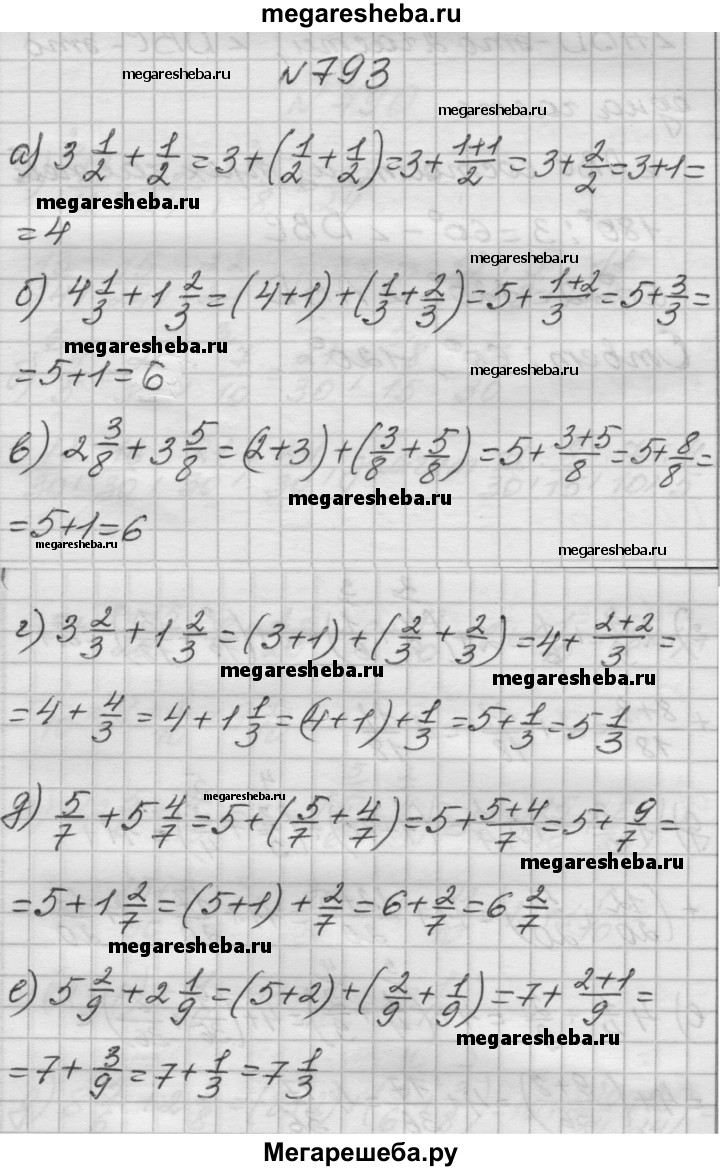 megaresheba.ru
megaresheba.ru
№793
megaresheba.ru
а) 3 1/2 + 1/2 = 3 + (1/2 + 1/2) = 3 + 1+1/2 = 3 + 2/2 = 3+1 =
megaresheba.ru
= 4
megaresheba.ru
б) 4 1/3 + 1 2/3 = (4+1) + (1/3 + 2/3) = 5 + 1+2/3 = 5 + 3/3 =
megaresheba.ru
megaresheba.ru
= 5+1 = 6
в) 2 3/8 + 3 5/8 = (2+3) + (3/8 + 5/8) = 5 + 3+5/8 = 5 + 8/8 =
megaresheba.ru
= 5+1 = 6
megaresheba.ru
megaresheba.ru
г) 3 2/3 + 1 2/3 = (3+1) + (2/3 + 2/3) = 4 + 2+2/3 =
megaresheba.ru
megaresheba.ru
= 4 + 4/3 = 4 + 1 1/3 = (4+1) + 1/3 = 5 + 1/3 = 5 1/3
megaresheba.ru
д) 5/7 + 5 4/7 = 5 + (5/7 + 4/7) = 5 + 5+4/7 = 5 + 9/7 =
megaresheba.ru
= 5 + 1 2/7 = (5+1) + 2/7 = 6 + 2/7 = 6 2/7
megaresheba.ru
е) 5 2/9 + 2 1/9 = (5+2) + (2/9 + 1/9) = 7 + 2+1/9 =
megaresheba.ru
= 7 + 3/9 = 7 + 1/3 = 7 1/3
Мегарешеба.ру